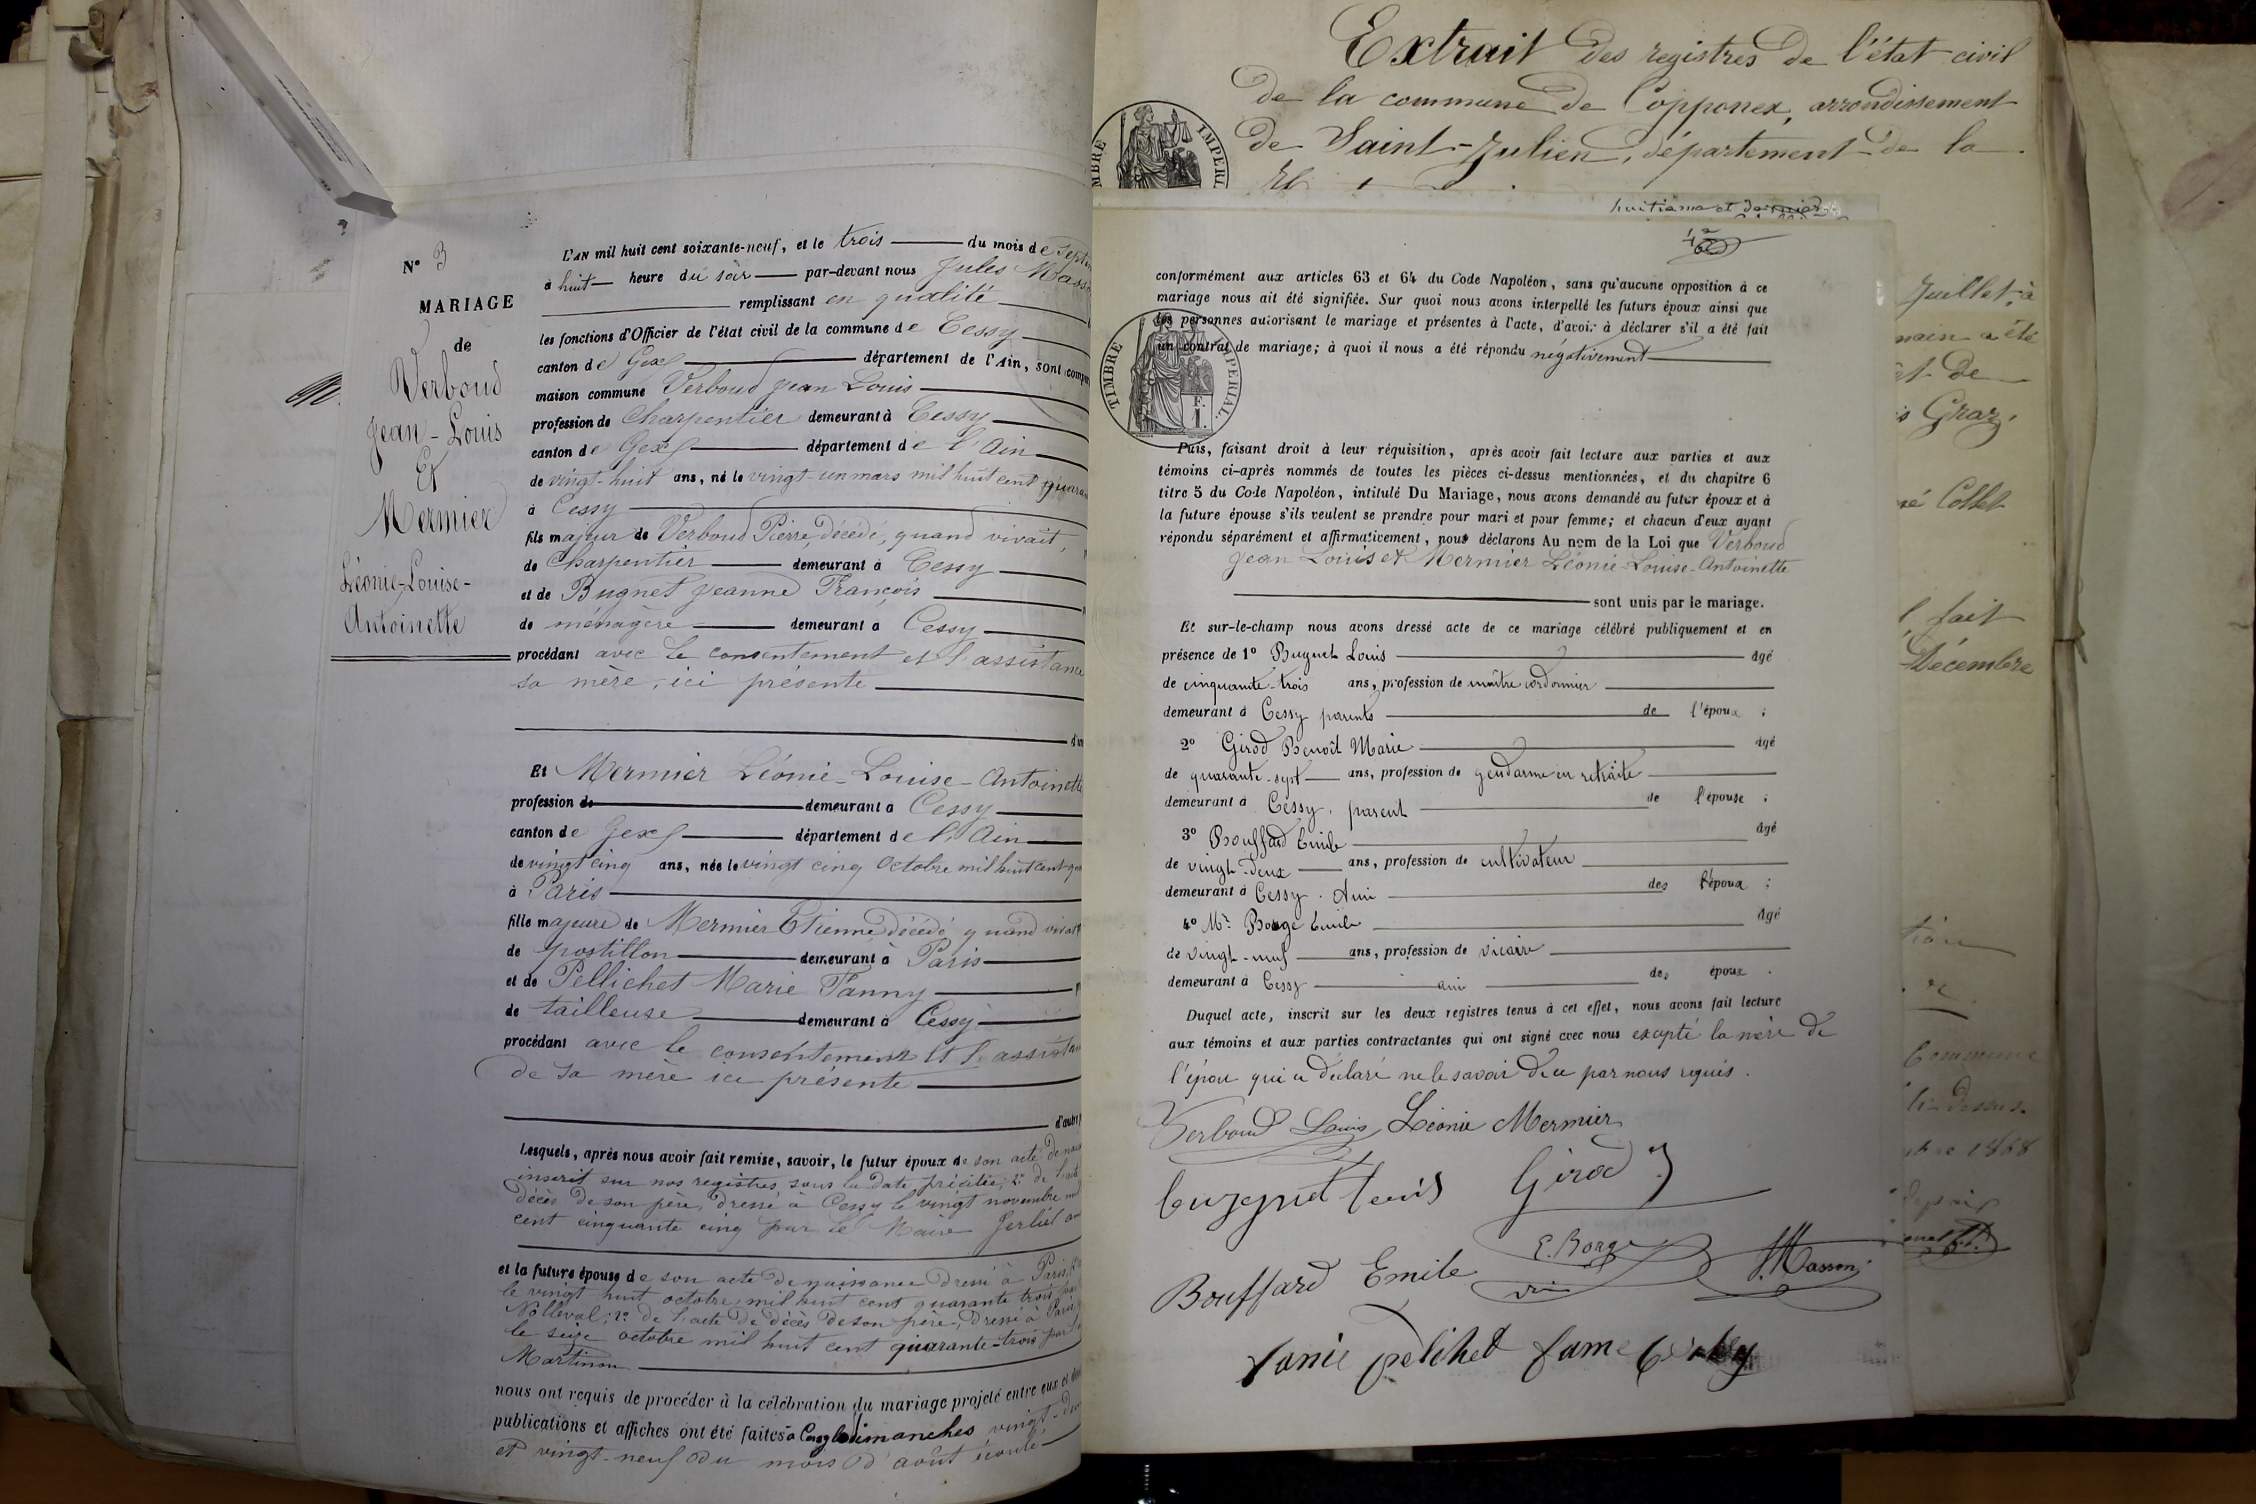 N° 3
MARIAGE
de
Verboud
Jean-Louis
Et
Mermier
Léonie-Louise-
Antoinette
L'AN mil huit cent soixante-neuf, et le trois du mois de Sept
à huit heure du soir par-devant nous Jules Mass
remplissant en qualité
les fonctions d'Officier de l'état civil de la commune de Cessy
canton de Gex département de l'Ain, sont comp
maison commune Verboud Jean Louis
profession de Charpentier demeurant à Cessy
canton de Gex département de l'Ain
de vingt-huit ans, né le vingt-un mars mil huit cent quaran
à Cessy
fils majeur de Verboud Pierre, décédé, quand vivait,
de Charpentier demeurant à Cessy
et de Bugnet Jeanne François
de ménagère demeurant à Cessy
procédant avec le consentement et l'assistance
sa mère, ici présente
Et Mermier Léonie-Louise-Antoinette
profession de demeurant à Cessy
canton de Gex département de l'Ain
de vingt cinq ans, née le vingt cinq Octobre mil huit cent
à Paris
fille majeure de Mermier Etienne décédé, quand vivait
de postillon demeurant à Paris
et de Pellichet Marie Fanny
de tailleuse demeurant à Cessy
procédant avec le consentement et l'assistan
de sa mère ici présente
d'autre
Lesquels, après nous avoir fait remise, savoir, le futur époux de son acte de
inscrit sur nos registres sous la date précitée; 2° de l'acte
décès de son père, dressé à Cessy le vingt novembre mil
cent cinquante cinq par le Maire
et la future épouse de son acte de naissance dressé à Paris,
le vingt huit octobre mil huit cent quarante trois
2° de l'acte de décès de son père, dressé à Paris
le seize octobre mil huit cent quarante-trois par
Martinon
nous ont requis de procéder à la célébration du mariage projeté entre eux et
publications et affiches ont été faites à Cessy les dimanches vingt-
et vingt-neuf du mois d'août écoulé
Extrait des registres de l'état civil
de la commune de Copponex, arrondissement
de Saint-Julien, département de la
TIMBRE IMPERI
huitième et dernier
conformément aux articles 63 et 64 du Code Napoléon, sans qu'aucune opposition à ce
mariage nous ait été signifiée. Sur quoi nous avons interpellé les futurs époux ainsi que
les personnes autorisant le mariage et présentes à l'acte, d'avoir à déclarer s'il a été fait
un contrat de mariage; à quoi il nous a été répondu négativement
TIMBRE IMPERIAL
F.
1.
Puis, faisant droit à leur réquisition, après avoir fait lecture aux parties et aux
témoins ci-après nommés de toutes les pièces ci-dessus mentionnées, et du chapitre 6
titre 5 du Code Napoléon, intitulé Du Mariage, nous avons demandé au futur époux et à
la future épouse s'ils veulent se prendre pour mari et pour femme; et chacun d'eux ayant
répondu séparément et affirmativement, nous déclarons Au nom de la Loi que Verboud
Jean Louis et Mermier Léonie-Louise-Antoinette
sont unis par le mariage.
Et sur-le-champ nous avons dressé acte de ce mariage célébré publiquement et en
présence de 1° Buguet Louis âgé
de cinquante-trois ans, profession de maître cordonnier
demeurant à Cessy parents de l'époux ;
2° Girod Benoît Marie âgé
de quarante-sept ans, profession de gendarme en retraite
demeurant à Cessy, parent de l'épouse ;
3° Bouffard Emile âgé
de vingt-deux ans, profession de cultivateur
demeurant à Cessy. Ami des l'époux ;
4° Mr. Borge Emile âgé
de vingt-neuf ans, profession de vicaire
demeurant à Cessy ami des époux .
Duquel acte, inscrit sur les deux registres tenus à cet effet, nous avons fait lecture
aux témoins et aux parties contractantes qui ont signé avec nous excepté la mère de
l'époux qui a déclaré ne le savoir de ce par nous requis.
Verboud Louis Léonie Mermier
Girod
E. Borge
vic
JMasson
Bouffard Emile
fanie pelichet fame
Juillet, à
a été
et de
Graz,
Collet
fait
Décembre
Commune
ci-dessus.
1868